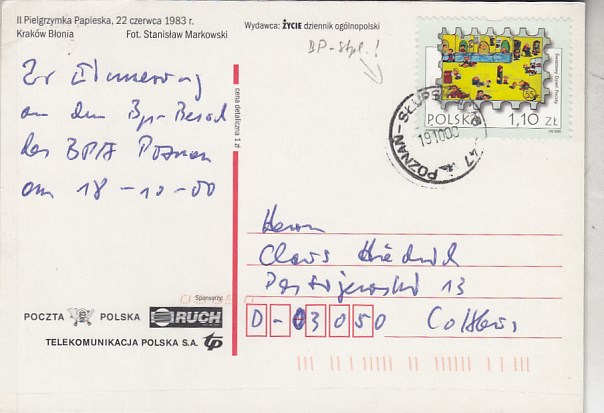 II Pielgrzymka Papieska, 22 czerwca 1983 r.
Kraków Błonia Fot. Stanisław Markowski
Wydawca: ŻYCIE dziennik ogólnopolski
BP-Stpl.!
POLSKA 1,10 ZŁ
POZNAŃ-SŁUPSK
191000
47
cena detaliczna 1 zł
Zur Erinnerung
an den Bpr-Besuch
des BPA Poznan
am 18-10-00
Herrn
Claus
13
D-03050 Cottbus
Sponsorzy:
POCZTA POLSKA RUCH
TELEKOMUNIKACJA POLSKA S.A. tp